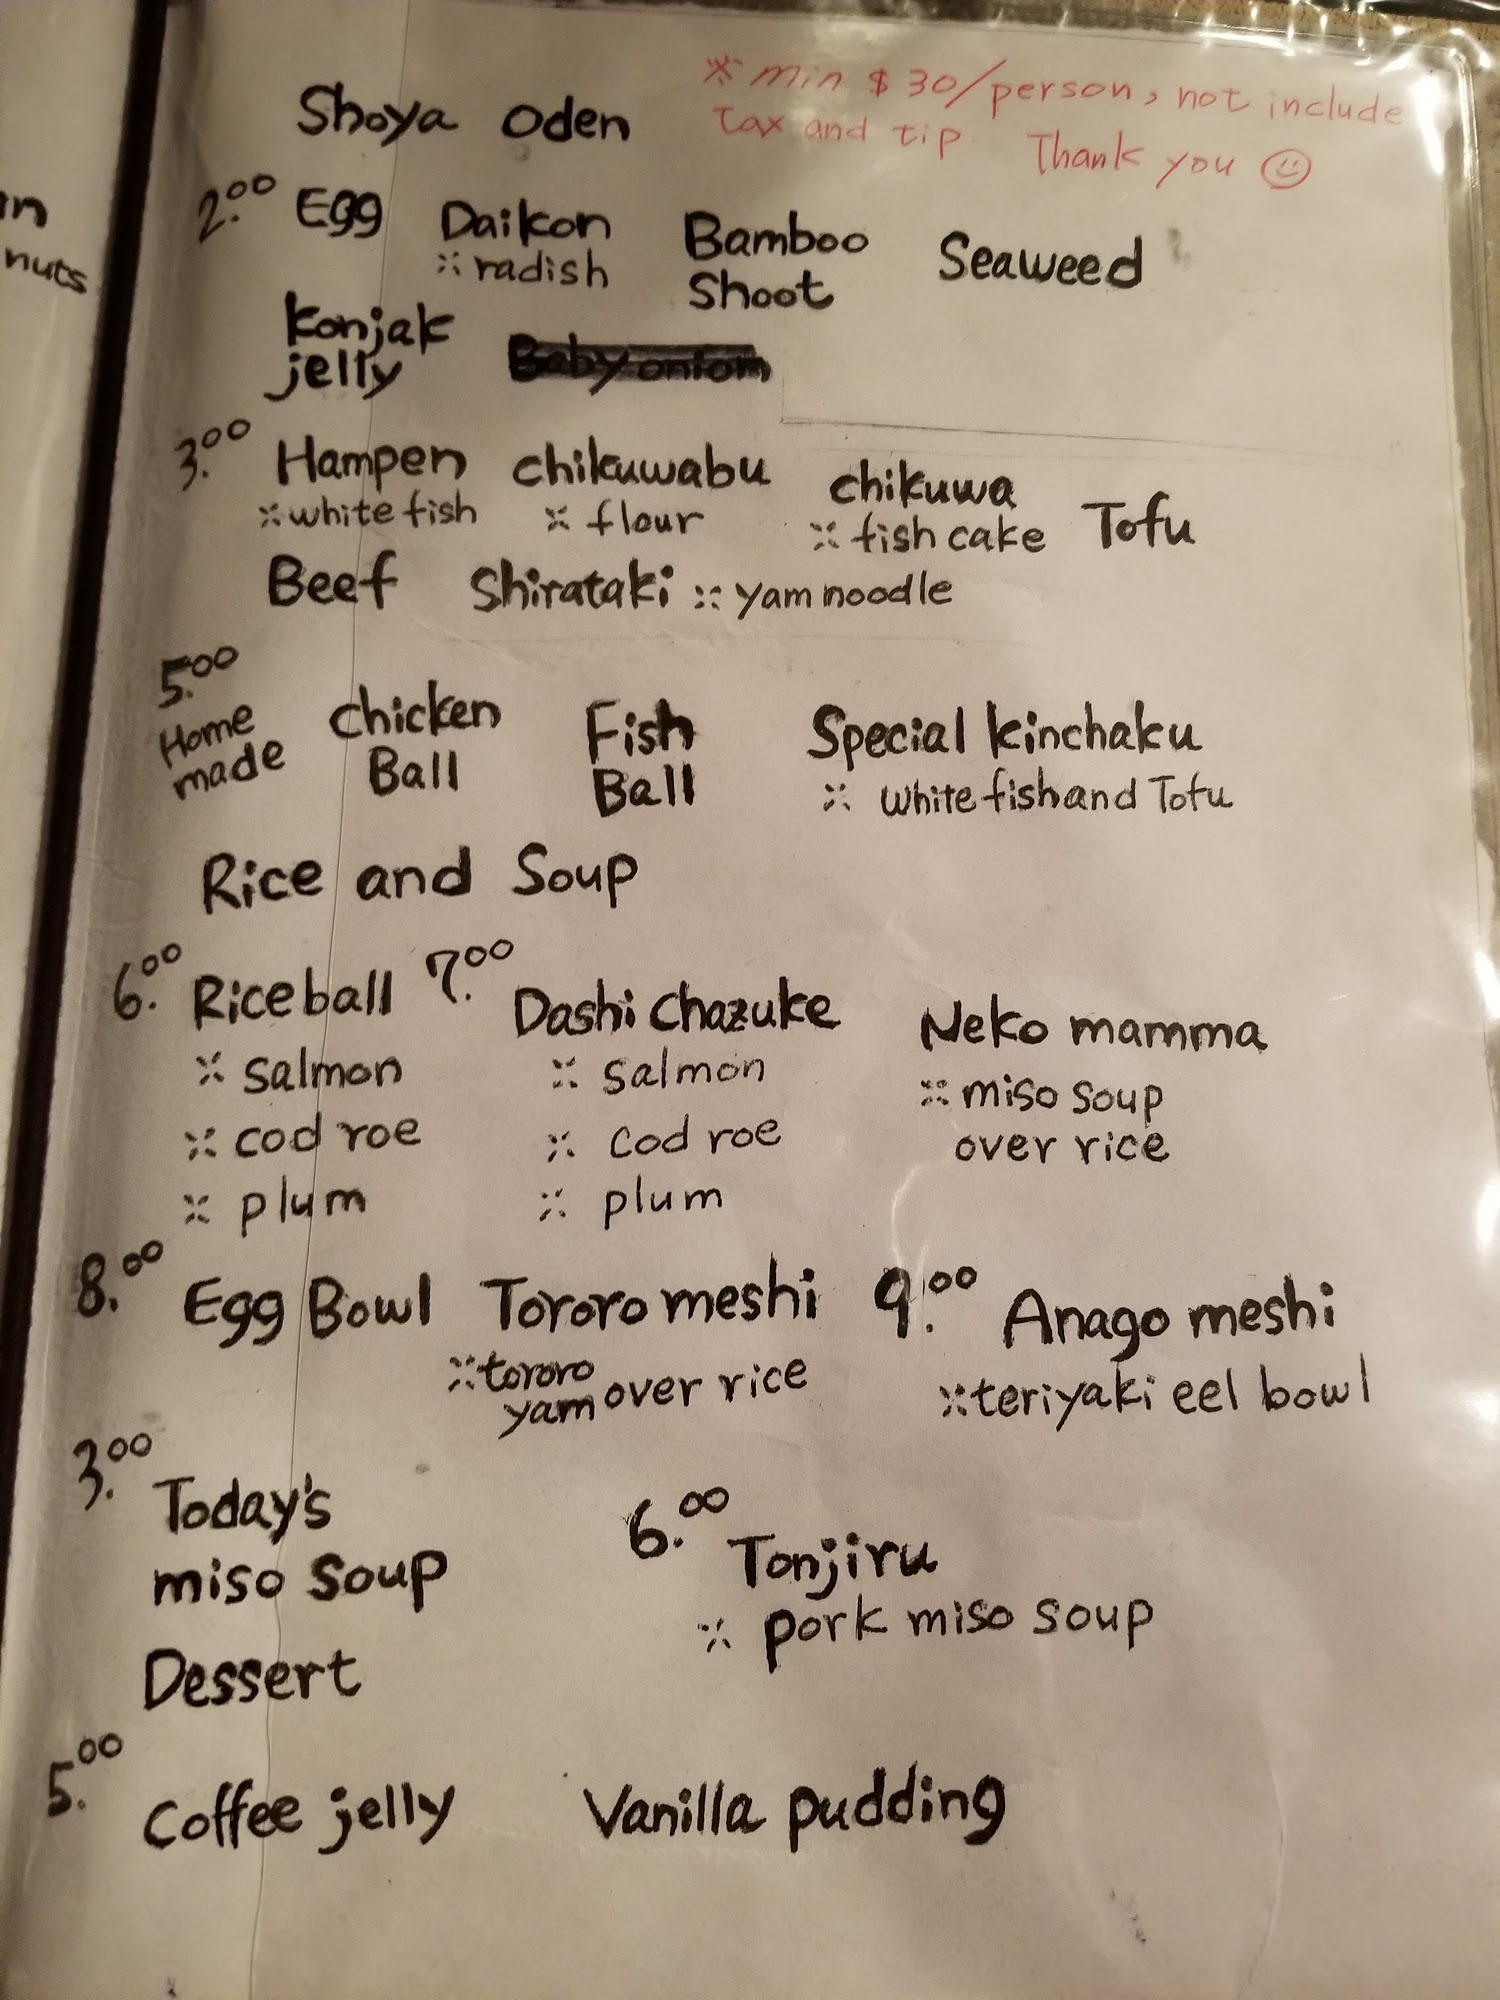 Shoya Oden
※ min $30/person, not include
tax and tip. Thank you
2.00 Egg Daikon Bamboo Seaweed
※ radish Shoot
Konjak
jelly Baby onion
3.00 Hampen chikuwabu chikuwa Tofu
※ white fish ※ flour ※ fish cake
Beef Shirataki ※ yam noodle
5.00
Home made Chicken Ball Fish Ball Special kinchaku
※ white fish and Tofu
Rice and Soup
6.00 Rice ball 7.00 Dashi Chazuke Neko mamma
※ salmon ※ salmon ※ miso soup
※ cod roe ※ cod roe over rice
※ plum ※ plum
8.00 Egg Bowl Tororo meshi 9.00 Anago meshi
※ tororo yam over rice ※ teriyaki eel bowl
3.00 Today's
miso soup
6.00 Tonjiru
※ pork miso soup
Dessert
5.00 Coffee jelly Vanilla pudding
nuts